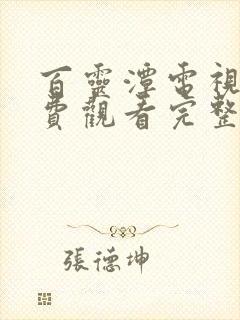 百靈潭電視
費觀看完整
張德坤